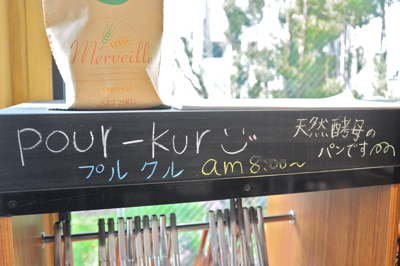 Merveille
pour-kur
プルクル am 8:00~
天然酵母の
パンです